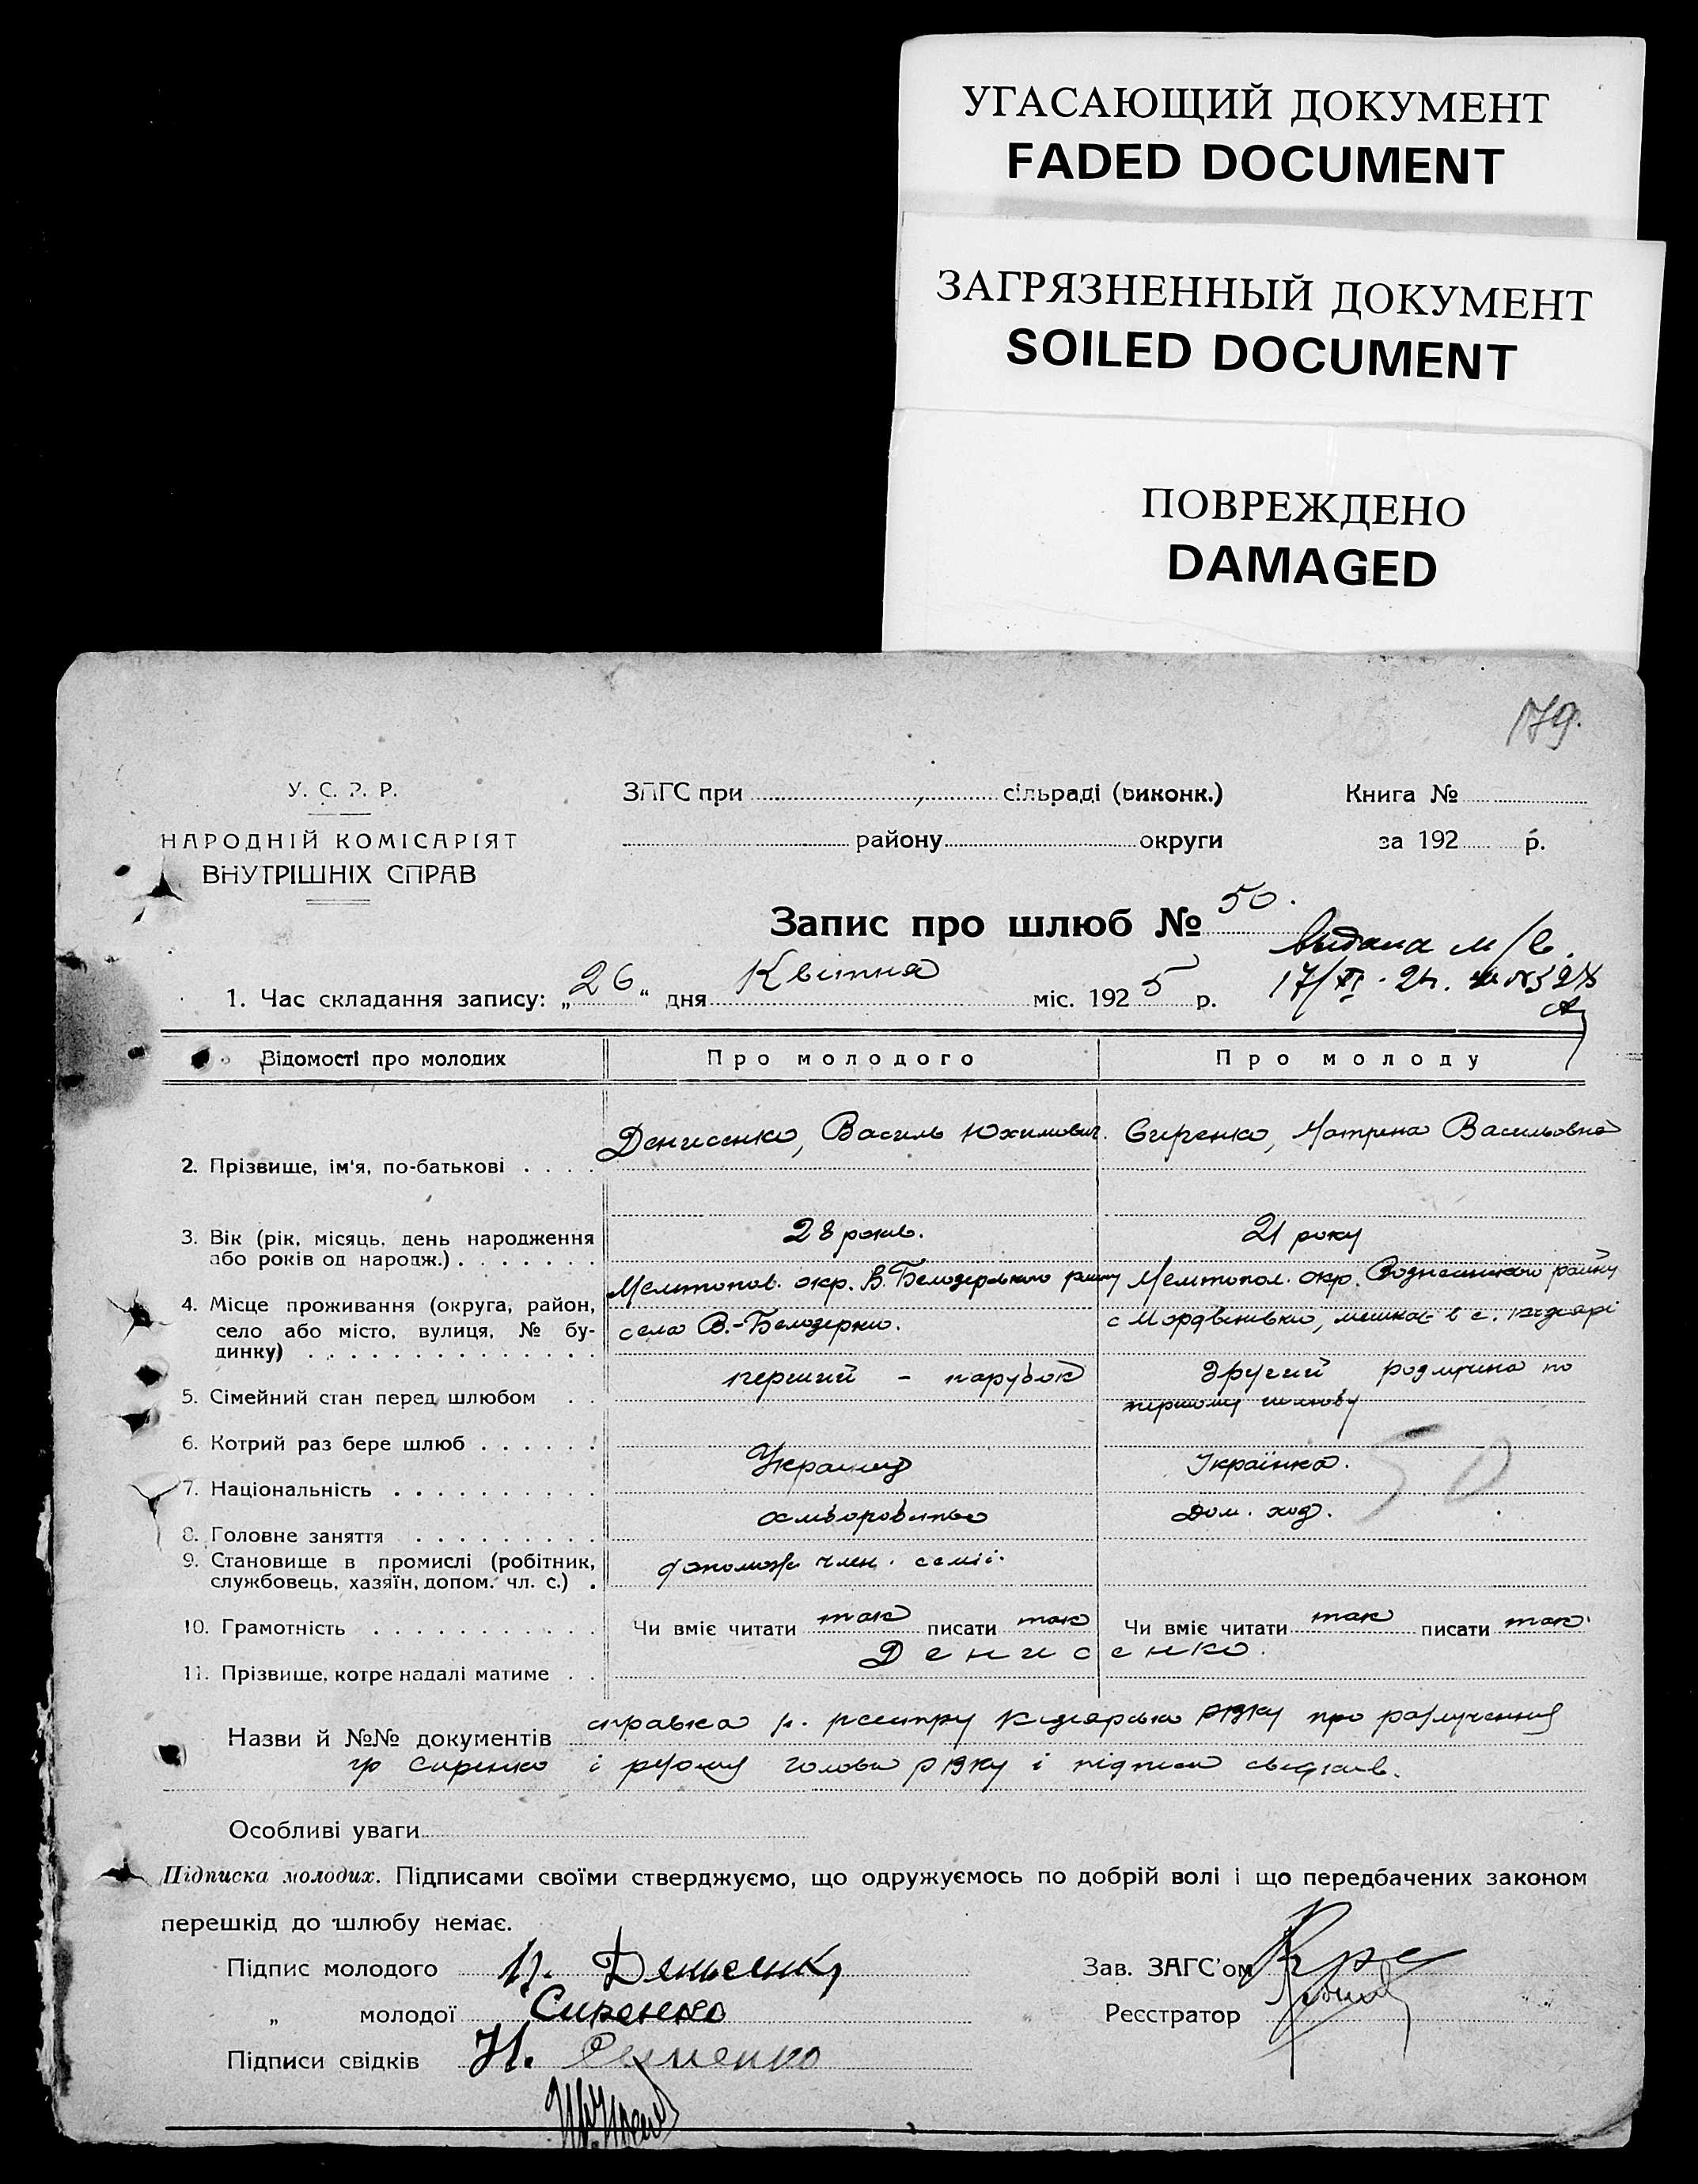 УГАСАЮЩИЙ ДОКУМЕНТ
FADED DOCUMENT
ЗАГРЯЗНЕННЫЙ ДОКУМЕНТ
SOILED DOCUMENT
ПОВРЕЖДЕНО
DAMAGED
179.
У. С. Р. Р.
НАРОДНІЙ КОМІСАРІЯТ
ВНУТРІШНІХ СПРАВ
ЗАГС при сільраді (виконк.)
району округи
Книга №
за 192 р.
Запис про шлюб № 50.
видана м/в.
17/XI
1. Час складання запису: „26“ дня Квітня міс. 1925 р.
Відомості про молодих Про молодого Про молоду
2. Прізвище, ім'я, по-батькові Денисенко, Василь Юхимович. Сиренко, Матрена Васильовна
3. Вік (рік, місяць, день народження або років од народж.) 28 років. 21 року
4. Місце проживання (округа, район, село або місто, вулиця, № будинку) Мелітопол. окр. В. Белозерського райну села В.-Белозерки. Мелітопол. окр. Вознесенского району с Мордвинівки, мешкає в с.
5. Сімейний стан перед шлюбом перший - парубок другий розлучена по
6. Котрий раз бере шлюб першому шлюбу
7. Національність Українец Українка. 50
8. Головне заняття хліборобство Дом. ход.
9. Становище в промислі (робітник, службовець, хазяїн, допом. чл. с.) допомож член. семії.
10. Грамотність Чи вміє читати так писати так Чи вміє читати так писати так
11. Прізвище, котре надалі матиме Денисенко.
Назви й №№ документів справка реєстру РВКу про разлучення
гр Сиренко і голови РВКу і підписи свідків.
Особливі уваги
Підписка молодих. Підписами своїми стверджуємо, що одружуємось по добрій волі і що передбачених законом
перешкід до шлюбу немає.
Підпис молодого Денисенко
„ молодої Сиренко
Підписи свідків
Зав. ЗАГС'ом
Реєстратор